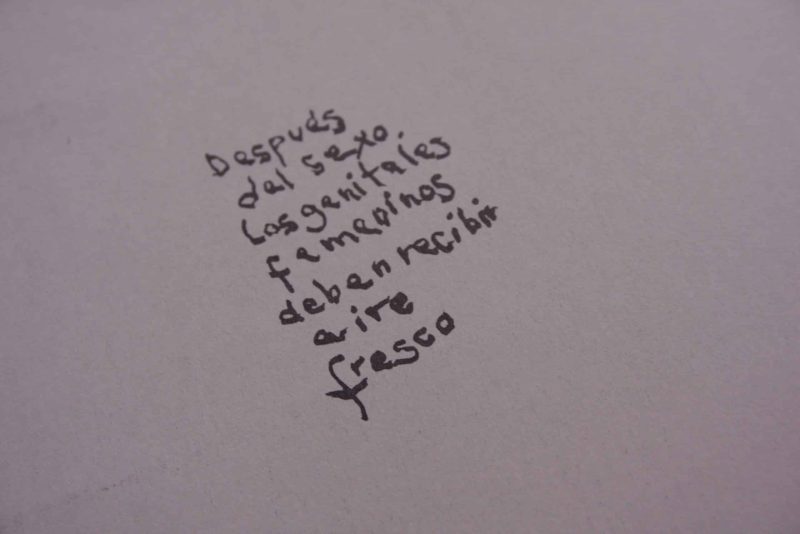 Después
del sexo.
Los genitales
femeninos
deben recibir
aire
fresco